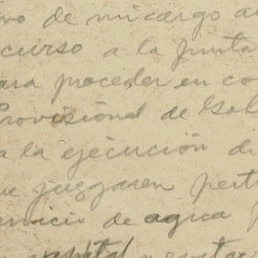 vo de mi cargo a
curso a la Junta
ara proceder en co
Provisional de Gob
a la ejecución de
ue juzgaren perti
ervicio de agua
capital